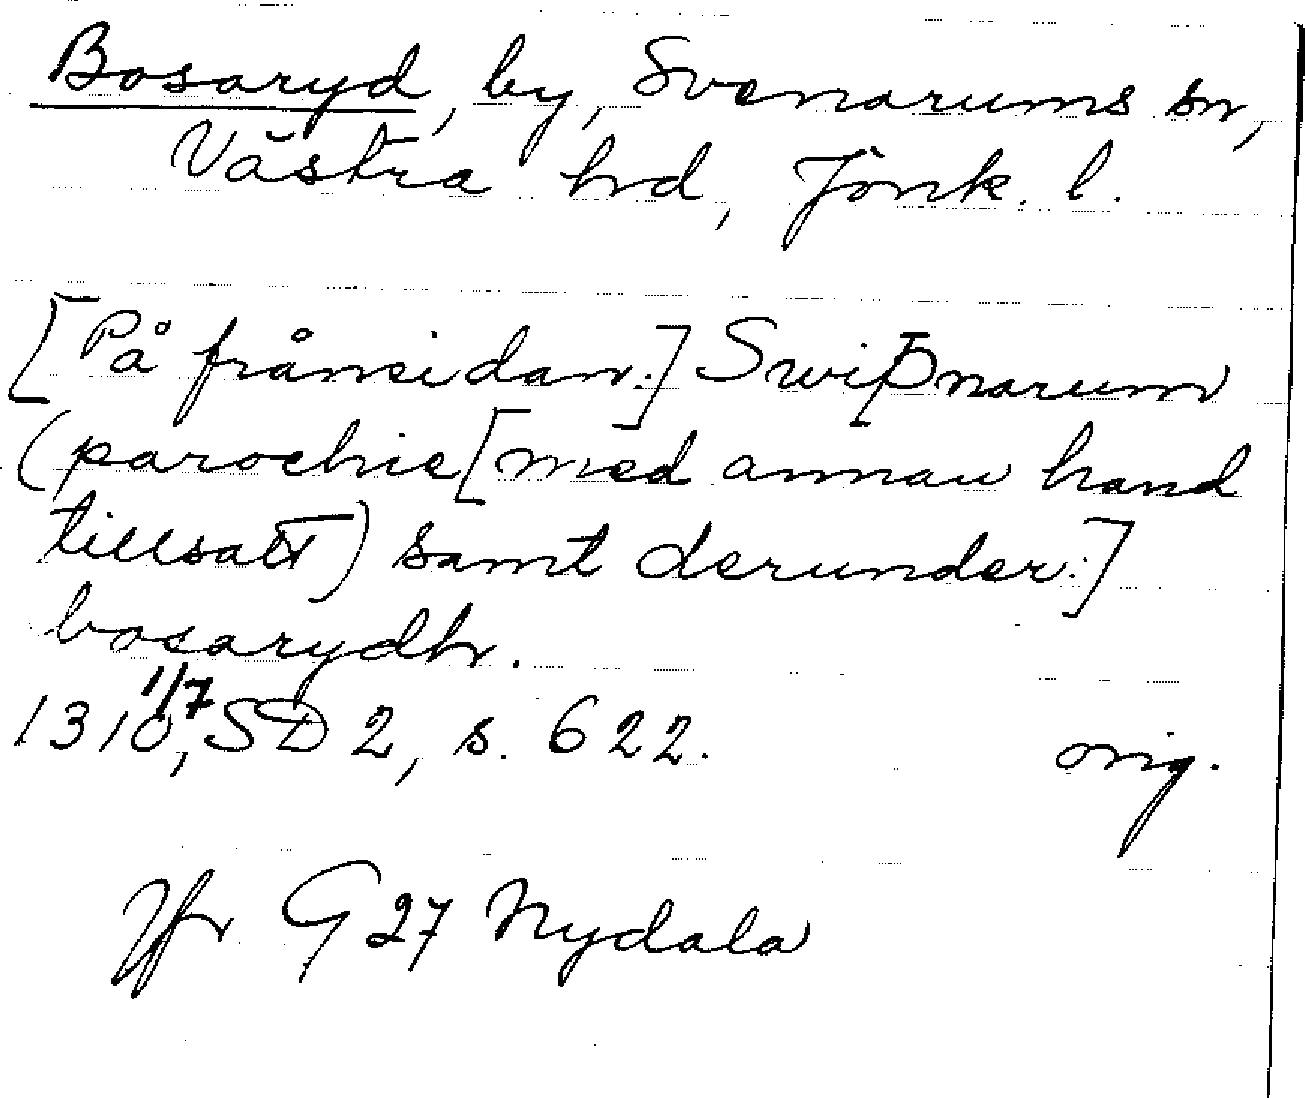 Bosaryd, by, Svenarums sn,
Västra hd, Jönk. l.
[På frånsidan:] Swiþnarum
(parochie [med annan hand
tillsatt) samt derunder:]
bosarydh.
1310 1/7, SD 2, s. 622. orig.
Jfr G 27 Nydala